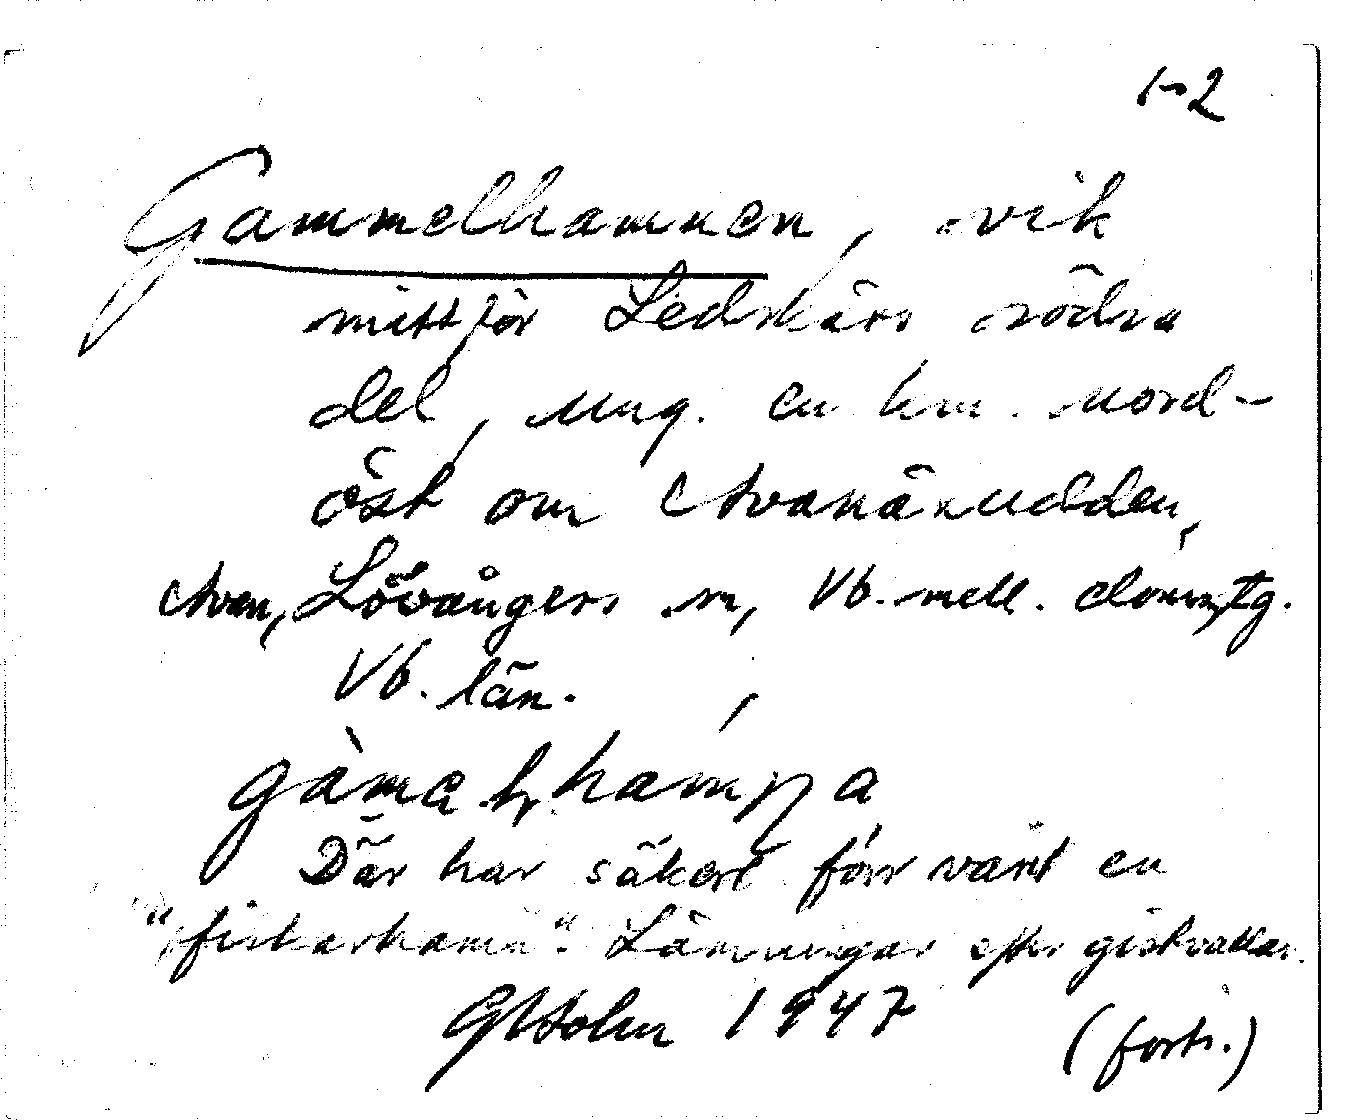 1-2
Gammelhamnen, vik
mittför Ledskärs södra
del, ung. en km. nord-
öst om Avanäsudden,
Avan, Lövångers sn, Vb. mell. doms,tg.
Vb. län.
Där har säkert förr varit en
"fiskarhamn". Lämningar efter gistvallar.
GHolm 1947
(forts.)